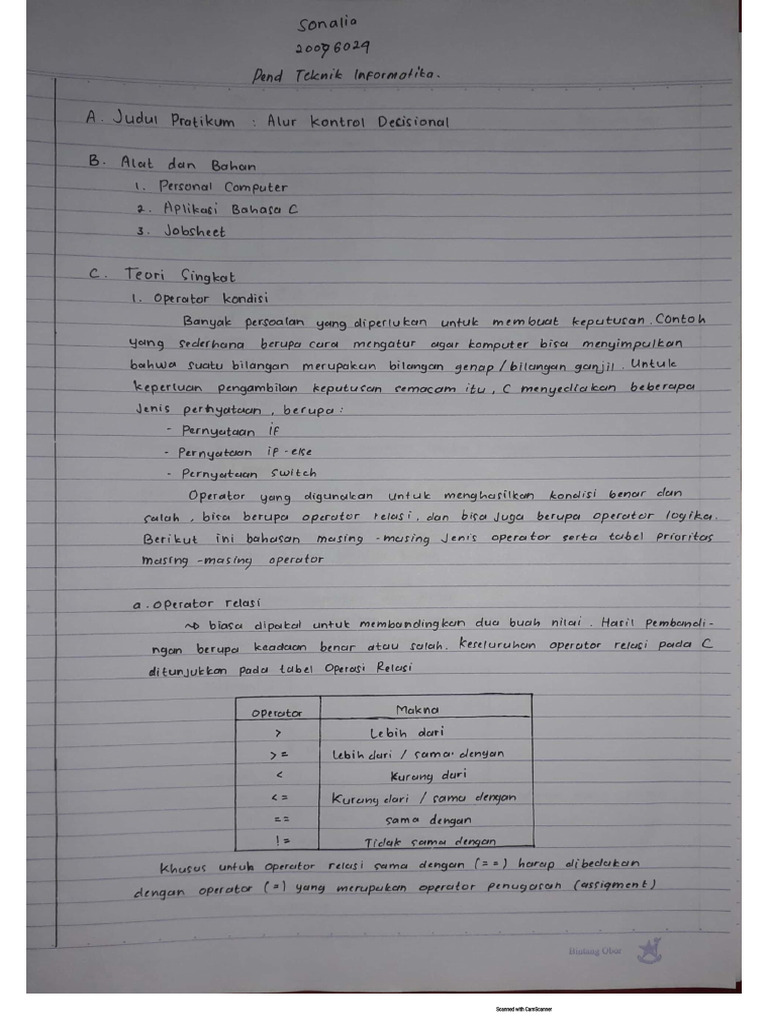 Sonalia
20076029
Pend Teknik Informatika.
A. Judul Pratikum : Alur Kontrol Decisional
B. Alat dan Bahan
1. Personal Computer
2. Aplikasi Bahasa C
3. Jobsheet
C. Teori Singkat
1. Operator kondisi
Banyak persoalan yang diperlukan untuk membuat keputusan. Contoh
yang sederhana berupa cara mengatur agar komputer bisa menyimpulkan
bahwa suatu bilangan merupakan bilangan genap / bilangan ganjil. Untuk
keperluan pengambilan keputusan semacam itu, C menyediakan beberapa
Jenis pernyataan, berupa :
- Pernyataan if
- Pernyataan if-else
- Pernyataan switch
Operator yang digunakan untuk menghasilkan kondisi benar dan
salah, bisa berupa operator relasi, dan bisa juga berupa operator logika.
Berikut ini bahasan masing-masing Jenis operator serta tabel prioritas
masing-masing operator
a. Operator relasi
↝ biasa dipakai untuk membandingkan dua buah nilai. Hasil Pembandi-
ngan berupa keadaan benar atau salah. Keseluruhan operator relasi pada C
ditunjukkan pada tabel Operasi Relasi
Operator Makna
> Lebih dari
>= Lebih dari / sama dengan
< Kurang dari
<= Kurang dari / sama dengan
== sama dengan
!= Tidak sama dengan
Khusus untuk operator relasi sama dengan (==) harap dibedakan
dengan operator (=) yang merupakan operator penugasan (assigment)
Bintang Obor
Scanned with CamScanner